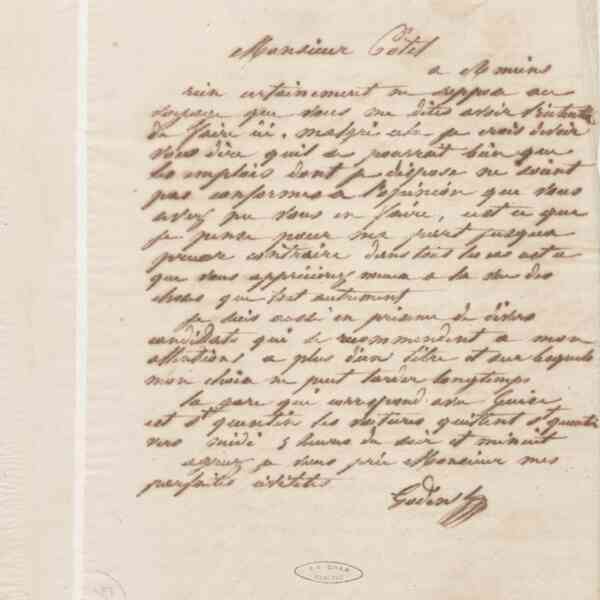 Monsieur Cotel
a Amiens
rien certainement ne soppose au
voyage que vous me dites avoir l'intention
de faire ici, malgré cela je crois devoir
vous dire quil se pourrait bien que
les emplois dont je dispose ne soient
pas conformes a l'opinion que vous
avez pu vous en faire, cest ce que
je pense pour ma part jusqua
preuve contraire dans tous les cas
que vous apprécierez mieux a la vue des
choses que tout autrement
je suis aussi en présence de divers
candidats qui se recommendent a mon
attentions a plus d'un titre et sur lesquels
mon choix ne peut tarder longtemps
la gare qui correspond avec Guise
est St quentin les voitures quittent St quentin
vers midi 5 heures du soir et minuit
agreez je vous prie Monsieur mes
parfaites civilités
Godin